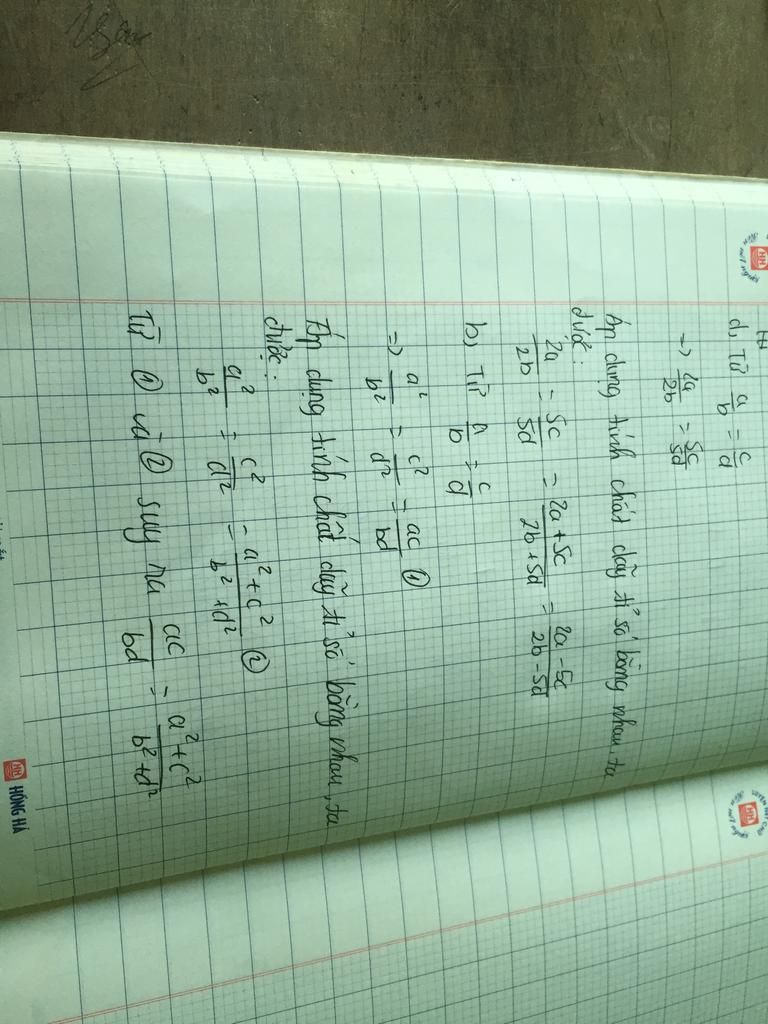 d, Từ a/b = c/d
=> 2a/2b = 5c/5d
Áp dụng tính chất dãy tỉ số bằng nhau ta
được:
2a/2b = 5c/5d = 2a+5c/2b+5d = 2a-5c/2b-5d
b, Từ a/b = c/d
=> a²/b² = c²/d² = ac/bd ①
Áp dụng tính chất dãy tỉ số bằng nhau, ta
được:
a²/b² = c²/d² = a²+c²/b²+d² ②
Từ ① và ② suy ra ac/bd = a²+c²/b²+d²
HỒNG HÀ